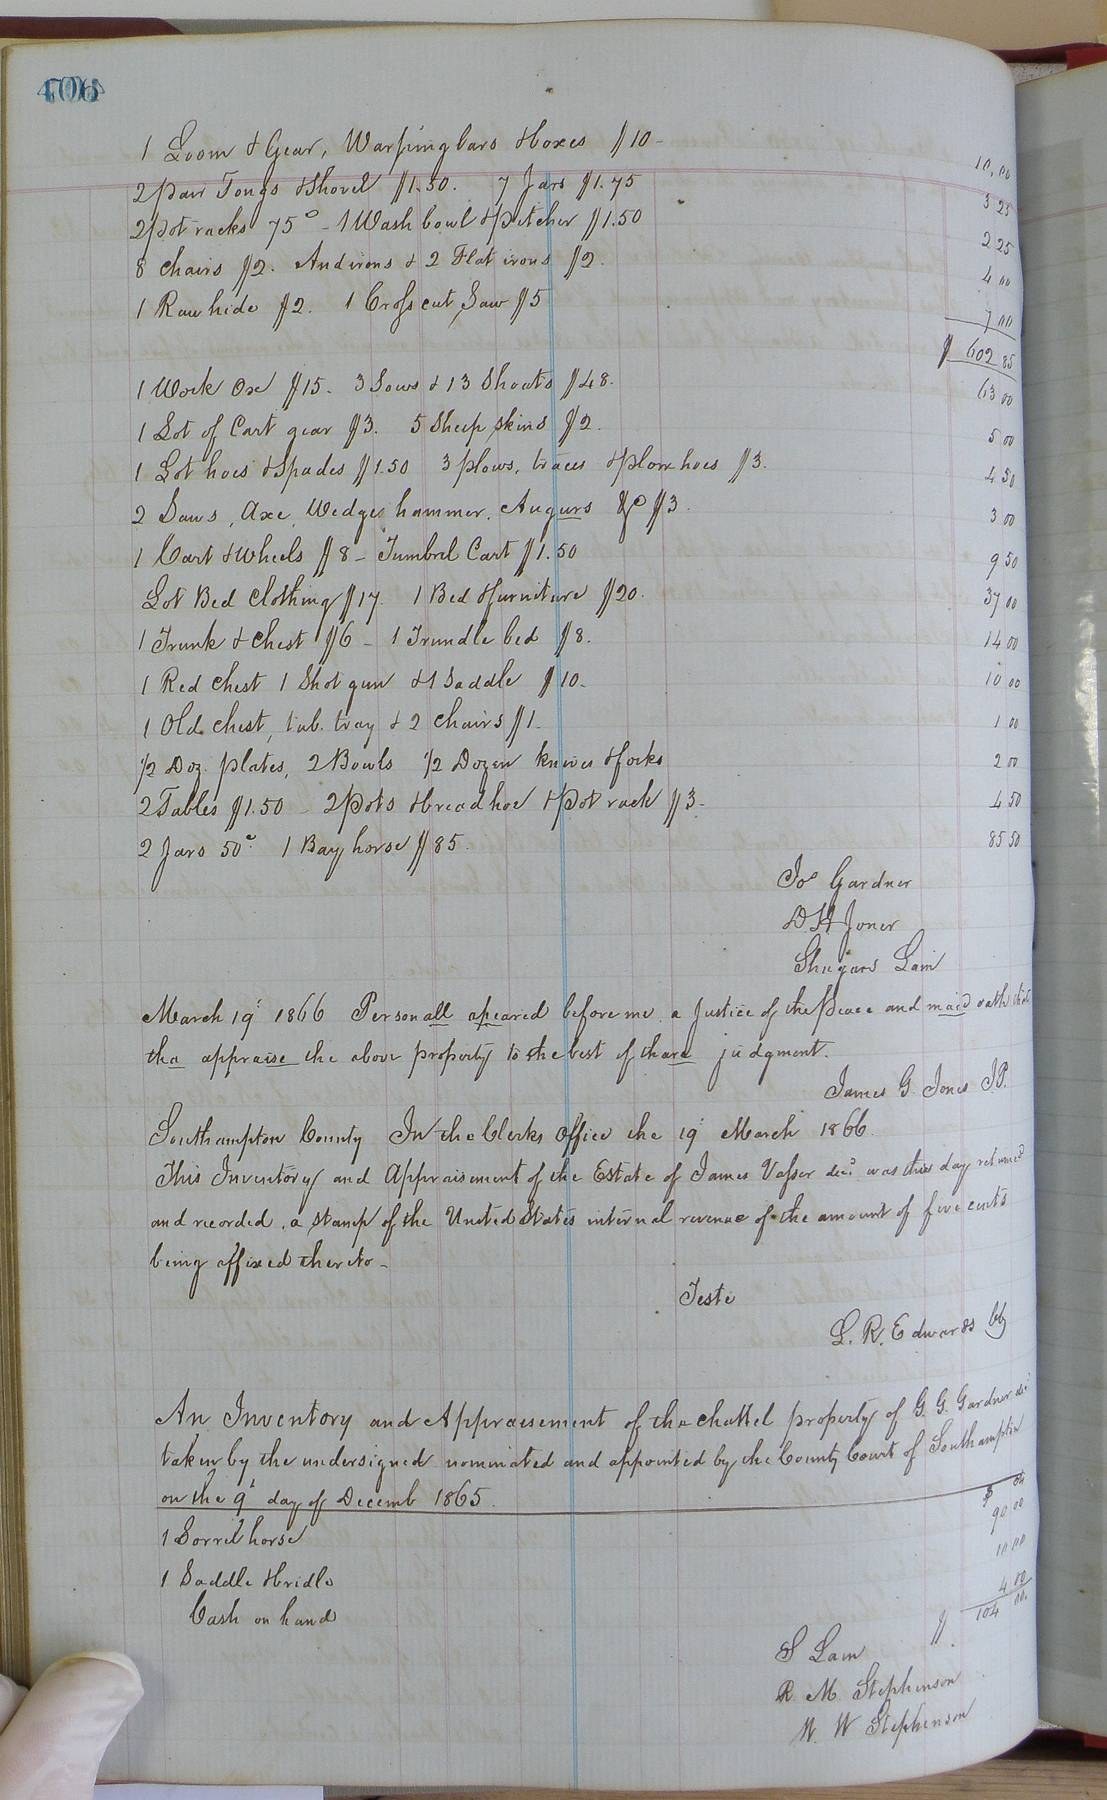 406
1 Loom & Gear, Warping bars & boxes $10- 10.00
2 pair Tongs & Shovel $1.50. 7 Jars $1.75 3 25
2 pot racks 75c - 1 Wash bowl & Pitcher $1.50 2 25
8 Chairs $2. Andirons & 2 Flat irons $2. 4 00
1 Raw hide $2. 1 Cross cut Saw $5 7 00
$ 602 85
1 Work Ox $15. 3 Sows & 13 Shoats $48. 63 00
1 Lot of Cart gear $3. 5 Sheep skins $2. 5 00
1 Lot hoes & Spades $1.50 3 plows, traces & plow hoes $3. 4 50
2 Saws, Axe, Wedges hammer, Augurs &c $3. 3 00
1 Cart & Wheels $8 - Tumbril Cart $1.50 9 50
Lot Bed Clothing $17. 1 Bed & furniture $20. 37 00
1 Trunk & Chest $6 - 1 Trundle bed $8. 14 00
1 Red Chest 1 Shot gun & 1 Saddle $10- 10 00
1 Old Chest, tub. tray & 2 Chairs $1- 1 00
1/2 Doz. plates, 2 Bowls 1/2 Dozen knives & forks 2 00
2 Tables $1.50 - 2 pots & bread hoe & Pot rack $3- 4 50
2 Jars 50c 1 Bay horse $85. 85 50
Jos Gardner
D H Joner
Shugars Lain
March 19' 1866 Personall apeared before me a Justice of the Peace and maid oath that
tha appraise the above property to the best of thare judgment.
James G Jones J.P.
Southampton County In the Clerks Office the 19' March 1866.
This Inventory and Appraisement of the Estate of James Vasser decd was this day returned
and recorded, a stamp of the United States internal revenue of the amount of five cents
being affixed thereto-
Teste
L. R. Edwards Clk
An Inventory and Appraisement of the chattel property of G. G. Gardner decd
taken by the undersigned nominated and appointed by the County Court of Southampton
on the 9' day of Decemb 1865.
$ cts
1 Sorrel horse 90 00
1 Saddle & bridle 10 00
Cash on hand 4 00
$ 104 00.
S Lain
R. M. Stephenson
W. W Stephenson